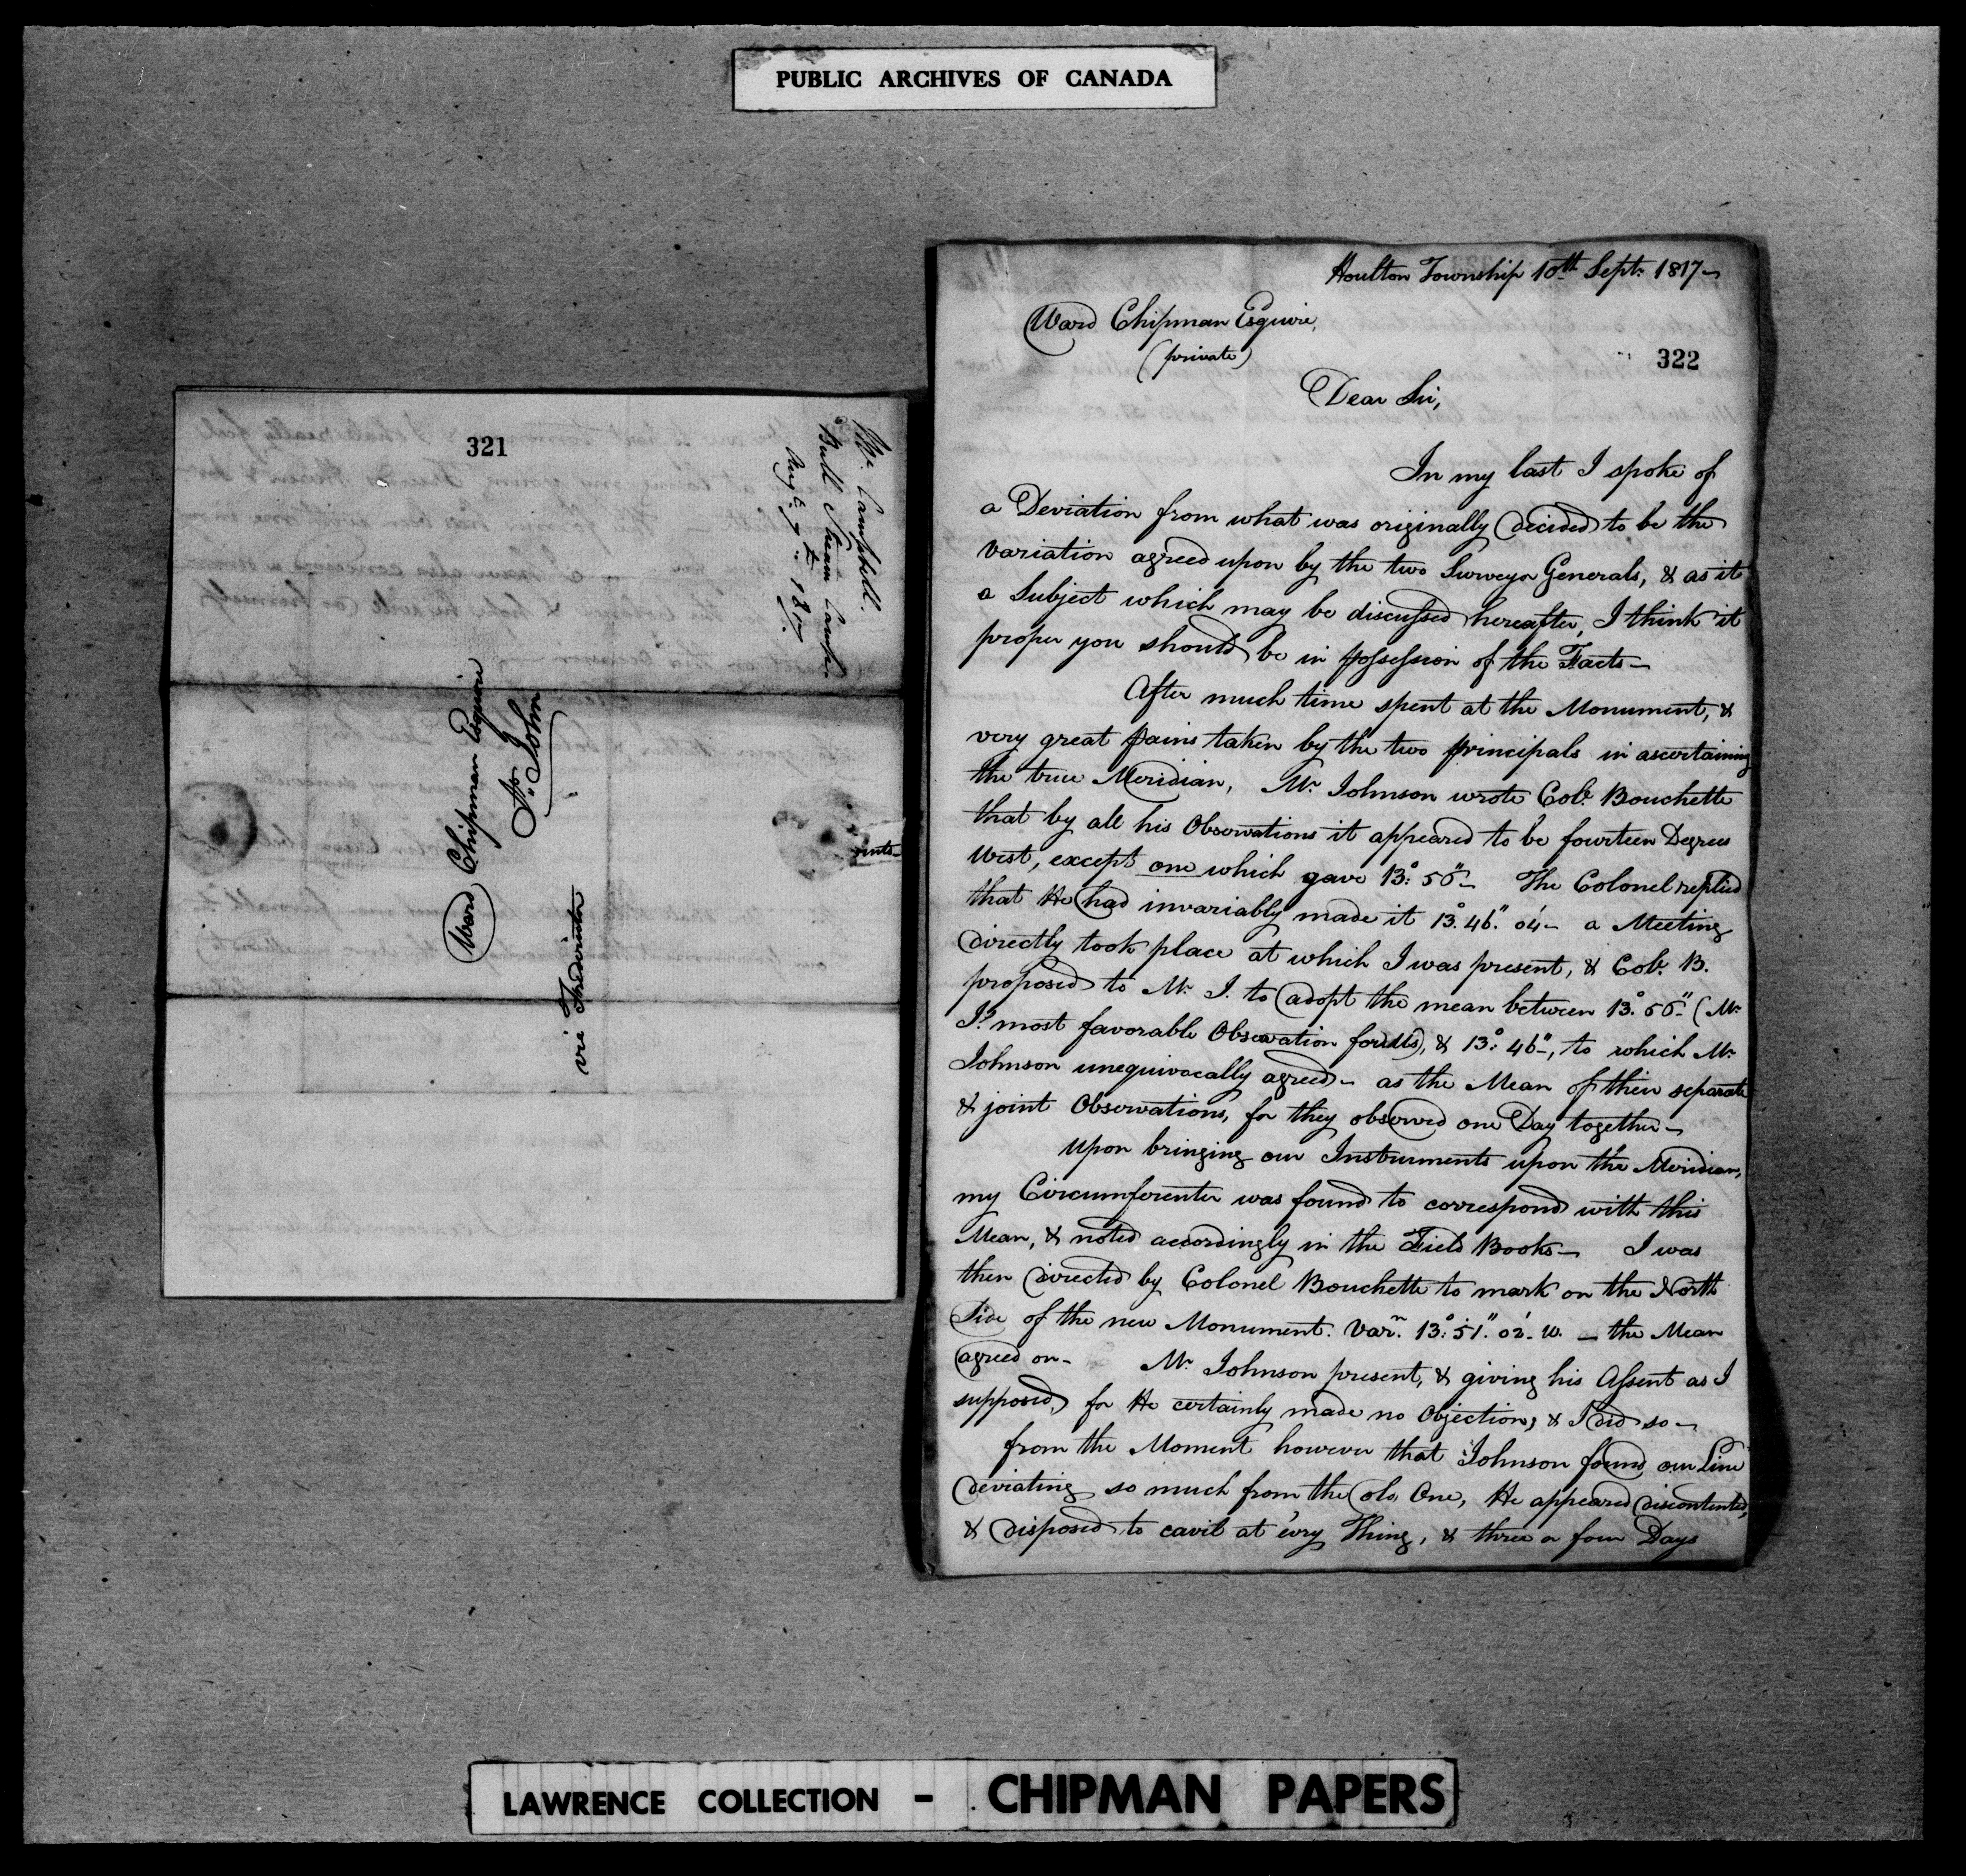 PUBLIC ARCHIVES OF CANADA
321
Mr. Campbell.
Bull Stream Camp.
Augt. 7th 1817.
Ward Chipman Esquire
St. John
via Fredericton
322
Houlton Township 10th Sept. 1817—
Ward Chipman Esquire,
(private)
Dear Sir,
In my last I spoke of
a Deviation from what was originally decided to be the
variation agreed upon by the two Surveyor Generals, & as it
a Subject which may be discussed hereafter, I think it
proper you should be in possession of the Facts—
After much time spent at the Monument, &
very great pains taken by the two principals in ascertaining
the true Meridian, Mr. Johnson wrote Col. Bouchette
that by all his Observations it appeared to be fourteen Degrees
West, except one which gave 13°: 56"— The Colonel replied
that He had invariably made it 13°. 46". 04'— a Meeting
directly took place at which I was present, & Col. B.
proposed to Mr. J. to adopt the mean between 13°. 56"— (Mr.
J's most favorable Observation for us), & 13°: 46"—, to which Mr.
Johnson unequivocally agreed— as the Mean of their separate
& joint Observations, for they observed one Day together—
Upon bringing our Instruments upon the Meridian,
my Circumferenter was found to correspond with this
Mean, & noted accordingly in the Field Books— I was
then directed by Colonel Bouchette to mark on the North
Side of the new Monument. Varn. 13°: 51". 02'. W. — the Mean
agreed on— Mr. Johnson present, & giving his Assent as I
supposed, for He certainly made no Objection, & I did so—
from the Moment however that Johnson found our Line
deviating so much from the old One, He appeared discontented,
& disposed to cavil at ev'ry Thing, & three or four Days
LAWRENCE COLLECTION - CHIPMAN PAPERS